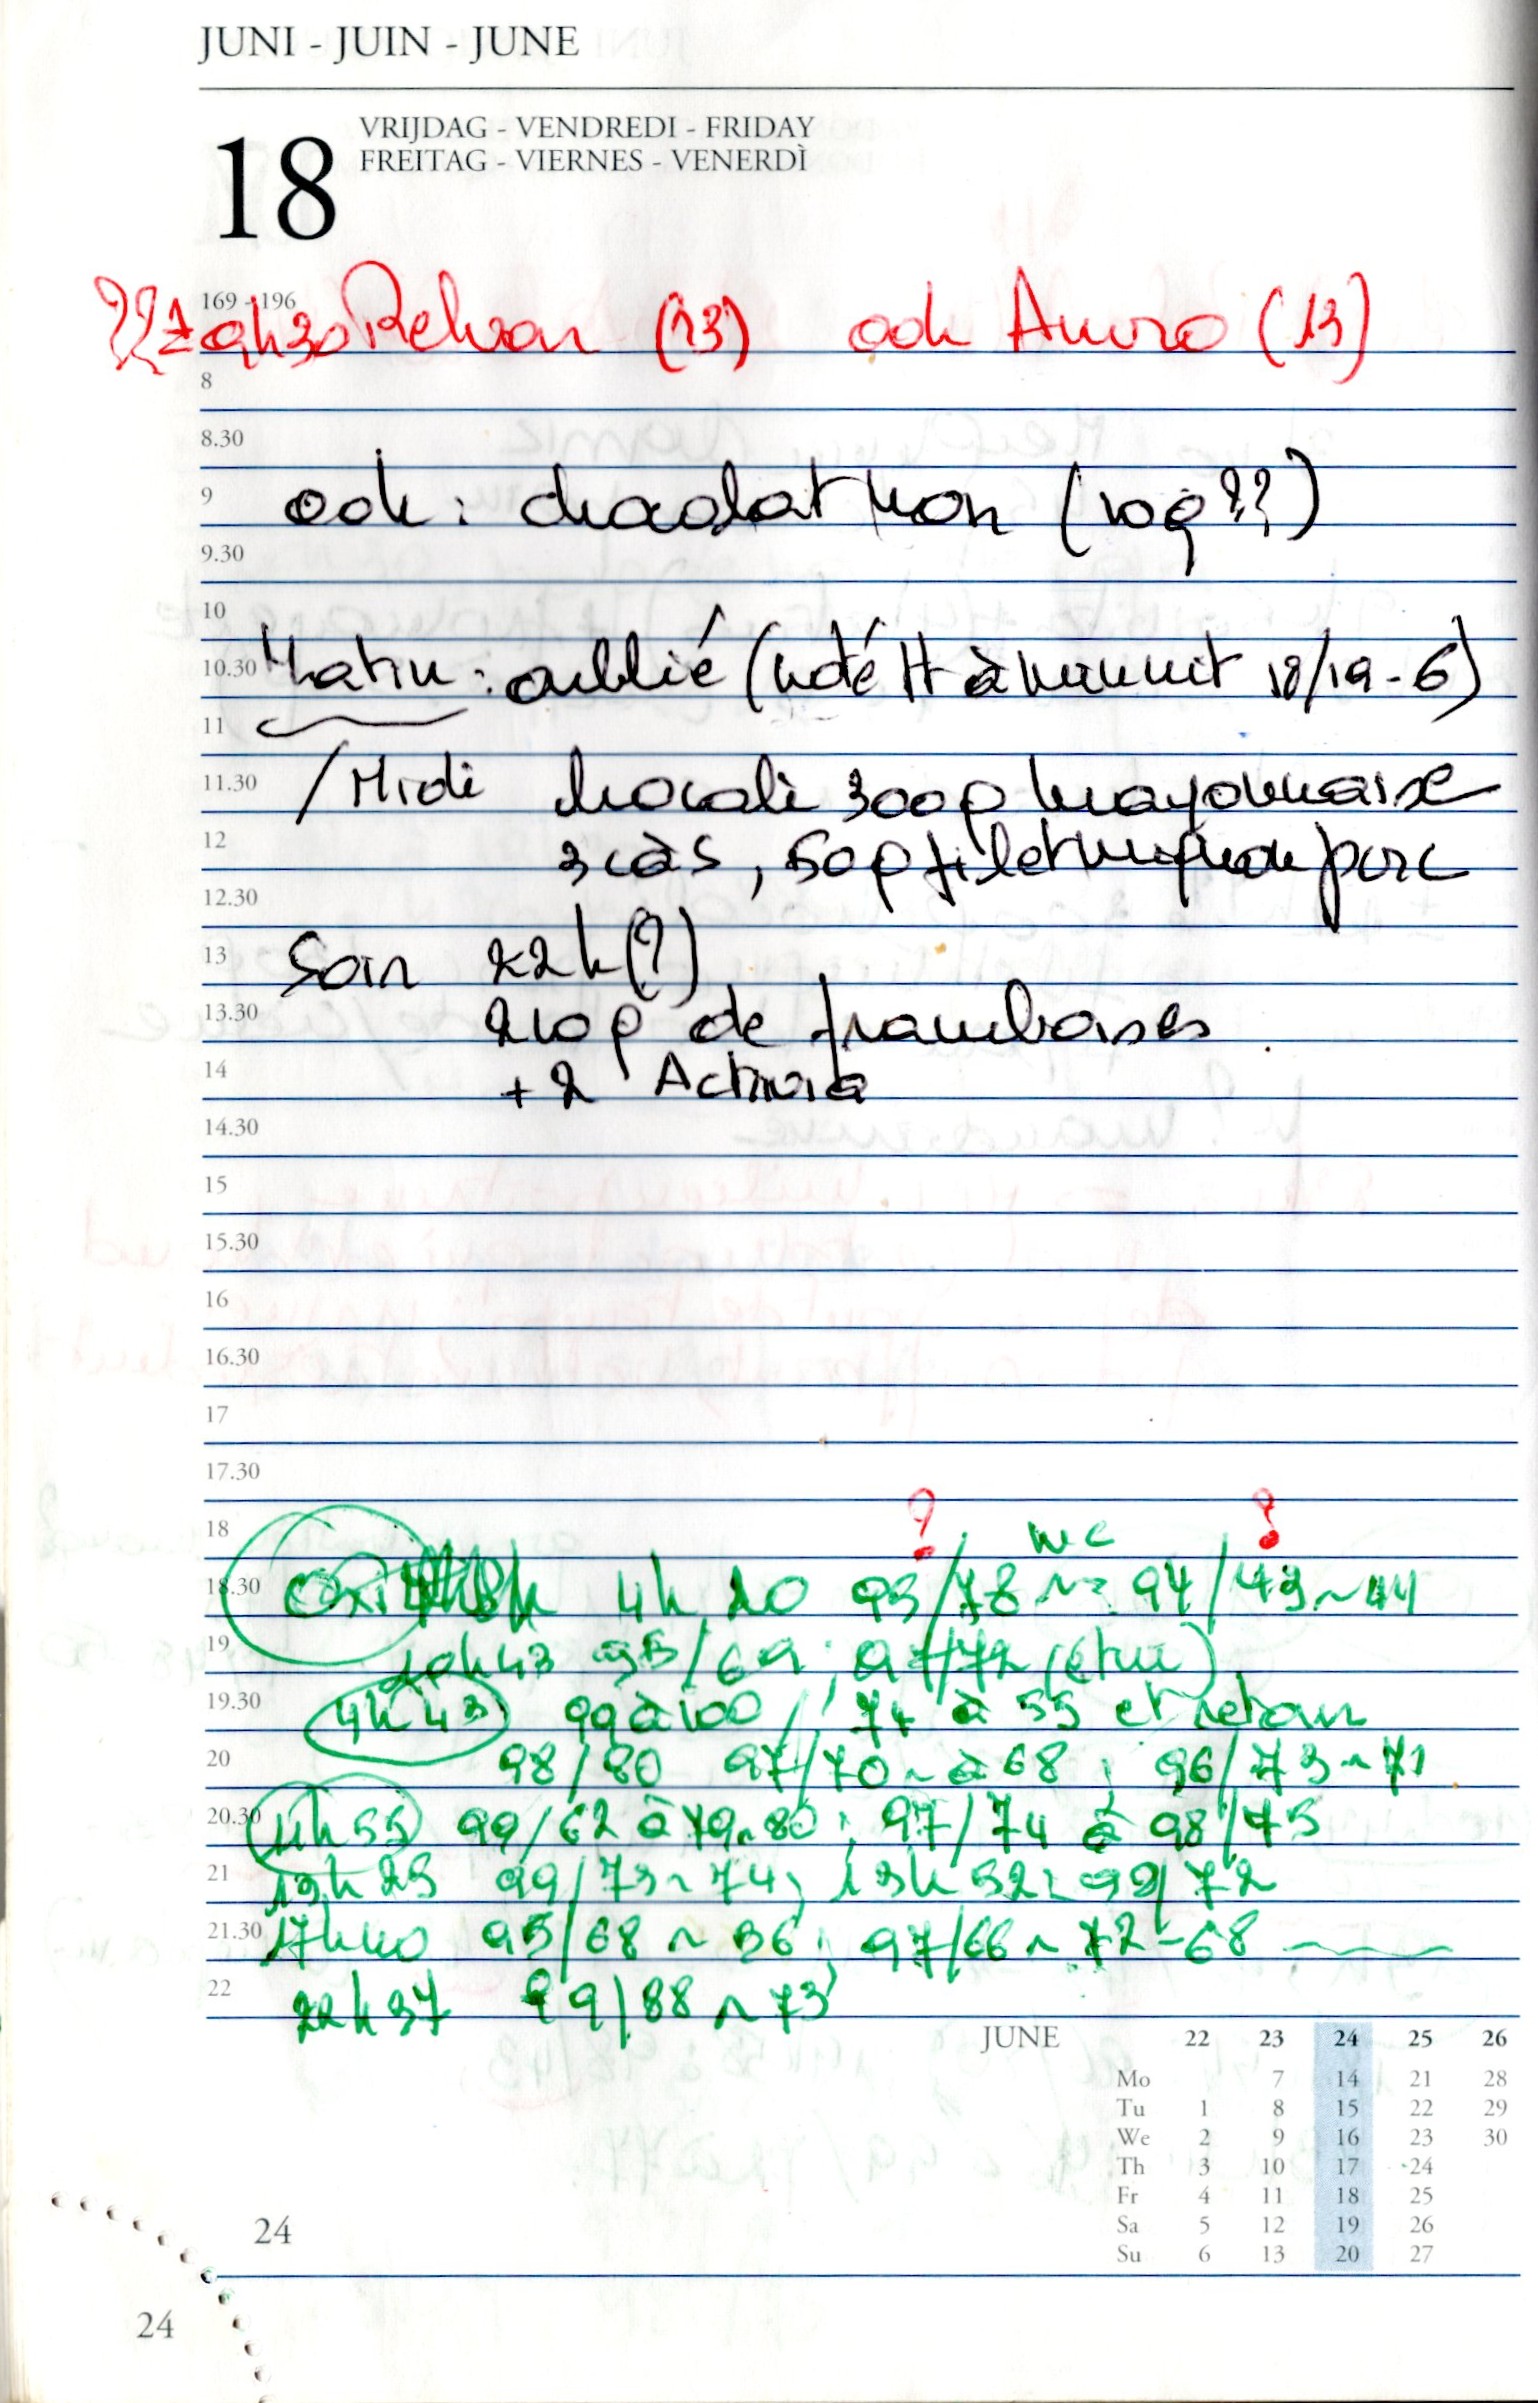 JUNI - JUIN - JUNE
18
VRIJDAG - VENDREDI - FRIDAY
FREITAG - VIERNES - VENERDÌ
169 - 196
(13) Amiro (13)
8
8.30
9 : chocolat (10g??)
9.30
10
10.30 Matin : oublié (noté à minuit 18/19-6)
11
11.30 / Midi brocoli 300g mayonnaise
12 3 càs, 50g filet de porc
12.30
13 Soir 22h(?)
13.30 210g de framboises
14 + 2 Activia
14.30
15
15.30
16
16.30
17
17.30
? WC ?
18
18.30 4h20 93/78 ~ 94/43~44
19 95/69 ; 97/72
19.30 4h43 99 à 100 / 74 à 55 et retour
20 98/80 97/70 ~ à 68 ; 96/73~71
20.30 11h55 99/62 à 79~80 ; 97/74 à 98/75
21 13h25 99/73~74 ; 13h52 : 99/72
21.30 17h40 95/68 ~ 56 ; 97/66 ~ 72-68
22 22h37 99/88 ~ 73
JUNE 22 23 24 25 26
Mo 7 14 21 28
Tu 1 8 15 22 29
We 2 9 16 23 30
Th 3 10 17 24
Fr 4 11 18 25
Sa 5 12 19 26
Su 6 13 20 27
24
24